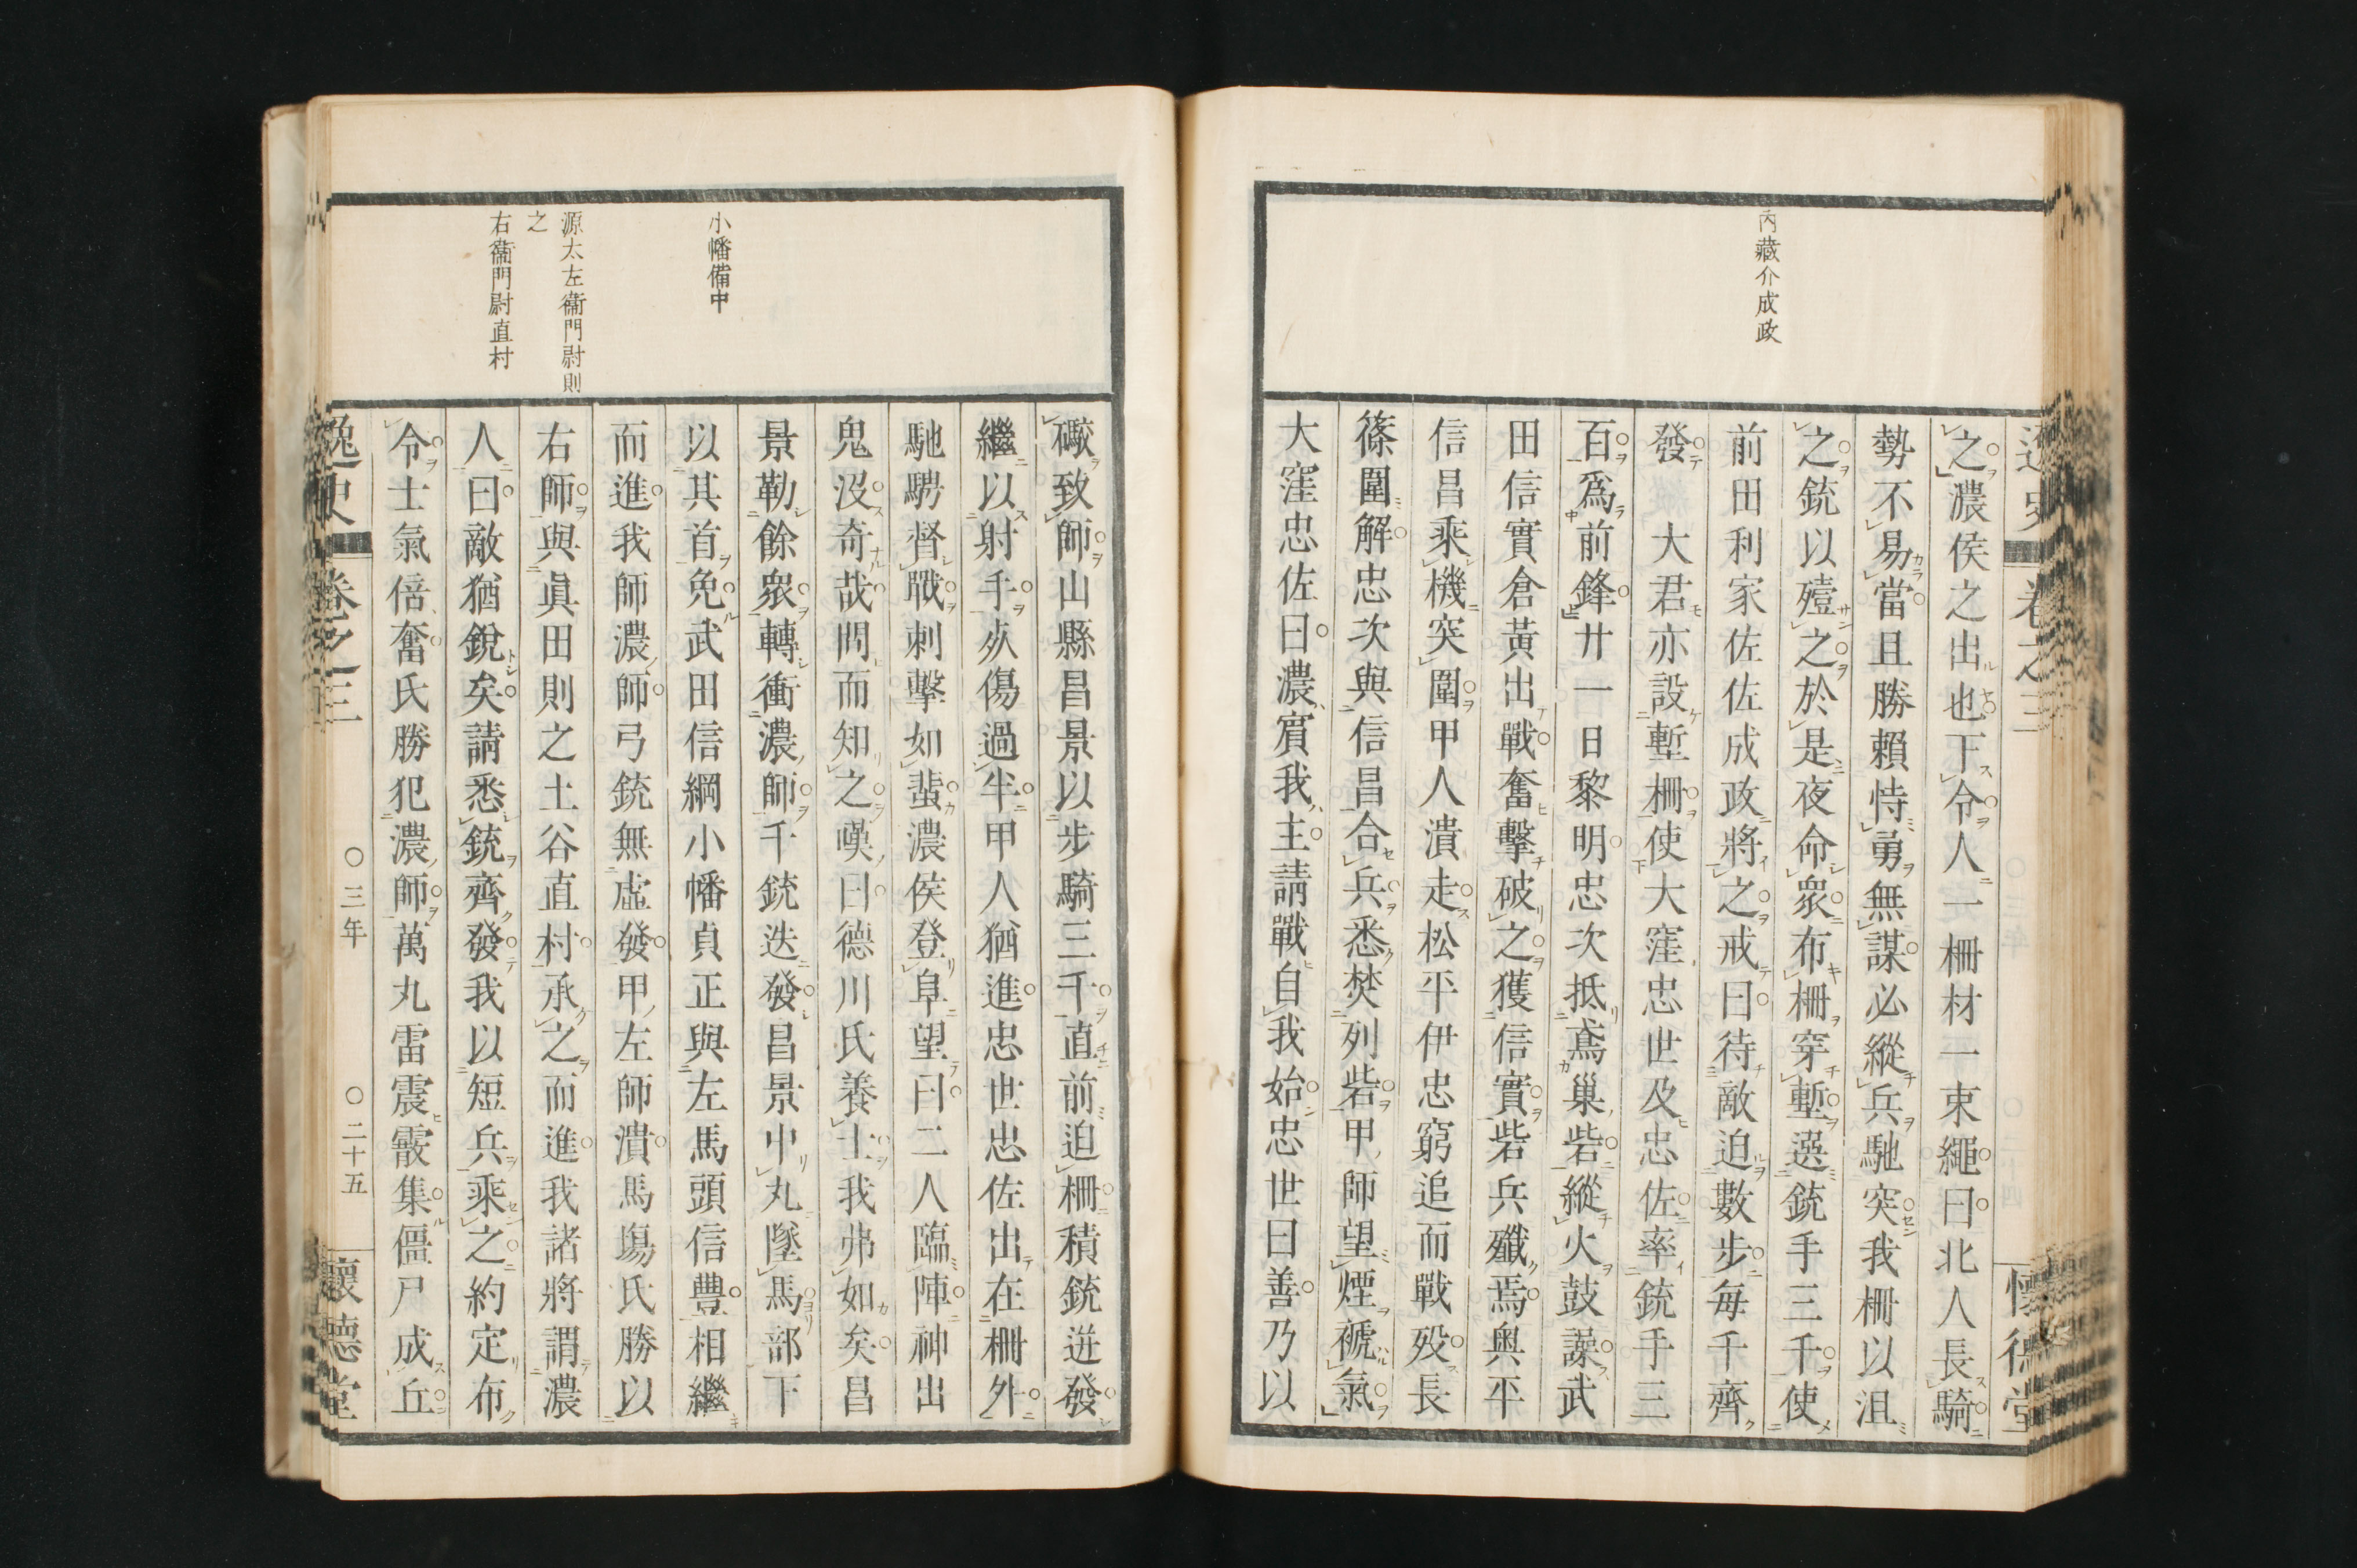 内藏介成政
之濃侯之出也下令人一柵材一束繩曰北人長騎
勢不易當且勝賴恃勇無謀必縱兵馳突我柵以沮
之銃以殪之於是夜命衆布柵穿塹選銃手三千使
前田利家佐佐成政將之戒曰待敵迫數步每千齊
發 大君亦設塹柵使大窪忠世及忠佐率銃手三
百爲前鋒廿一日黎明忠次抵鳶巢砦縱火鼓譟武
田信實倉黃出戰奮擊破之獲信實砦兵殲焉奧平
信昌乘機突圍甲人潰走松平伊忠窮追而戰歿長
篠圍解忠次與信昌合兵悉焚列砦甲師望煙褫氣
大窪忠佐曰濃賓我主請戰自我始忠世曰善乃以
小幡備中
源太左衞門尉則
之
右衞門尉直村
礮致師山縣昌景以步騎三千直前迫柵積銃迸發
繼以射手夾傷過半甲人猶進忠世忠佐出在柵外
馳騁督戰刺擊如蜚濃侯登阜望曰二人臨陣神出
鬼沒奇哉問而知之嘆曰德川氏養士我弗如矣昌
景勒餘衆轉衝濃師千銃迭發昌景中丸墜馬部下
以其首免武田信綱小幡貞正與左馬頭信豐相繼
而進我師濃師弓銃無虛發甲左師潰馬場氏勝以
右師與眞田則之土谷直村承之而進我諸將謂濃
人曰敵猶銳矣請悉銃齊發我以短兵乘之約定布
令士氣倍奮氏勝犯濃師萬丸雷震霰集僵尸成丘
逸史 卷之三 〇三年 〇二十五 懷德堂